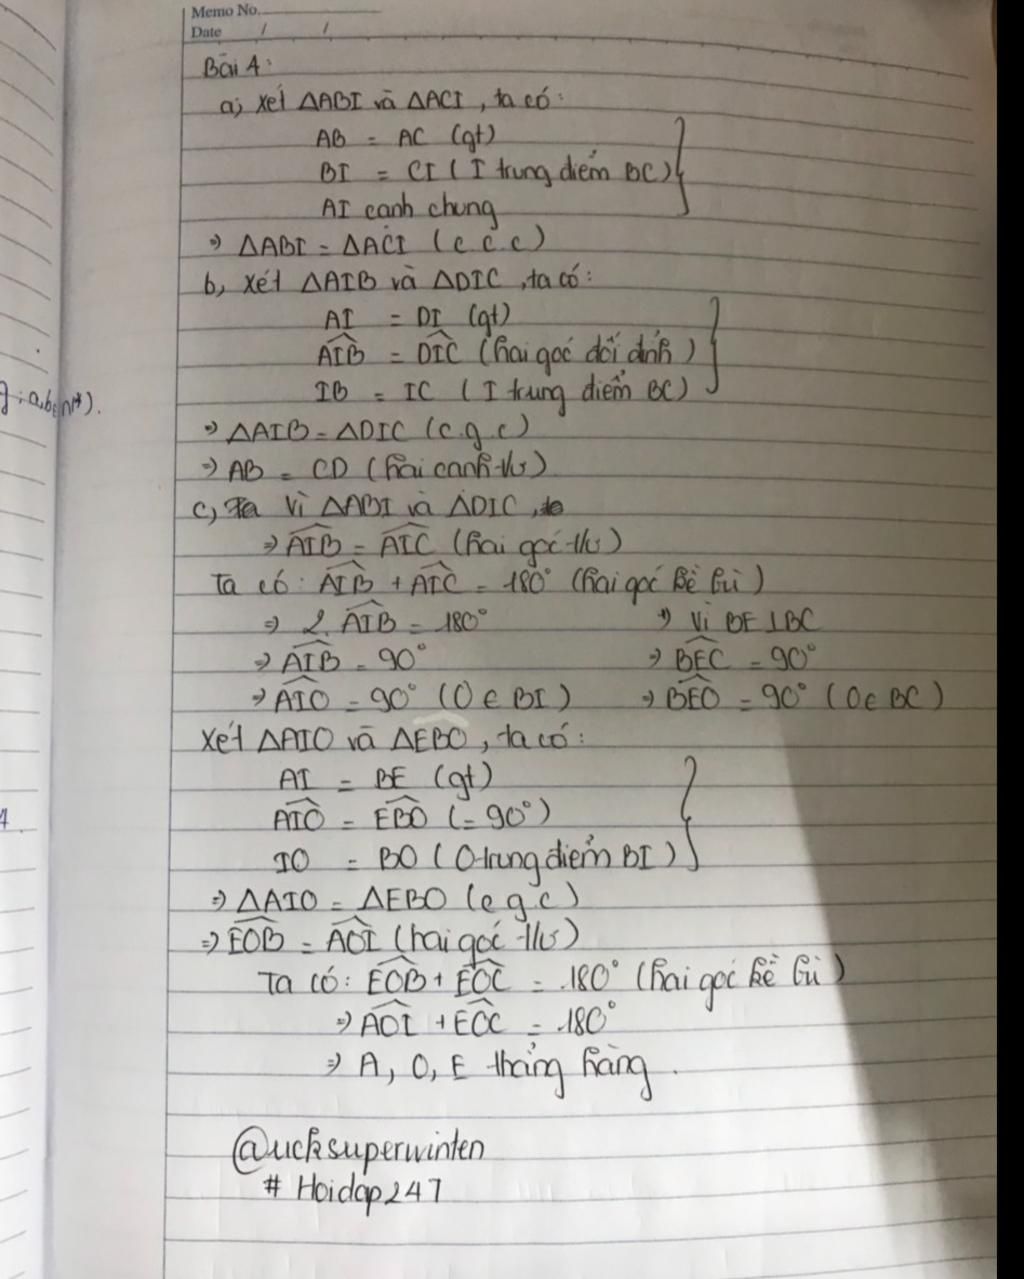 Memo No.
Date / /
Bài 4:
a, Xét ΔABI và ΔACI, ta có:
AB = AC (gt)
BI = CI (I trung điểm BC)
AI cạnh chung
⇒ ΔABI = ΔACI (c c c)
b, Xét ΔAIB và ΔDIC, ta có:
AI = DI (gt)
AIB = DIC (hai góc đối đỉnh)
IB = IC (I trung điểm BC)
⇒ ΔAIB = ΔDIC (c.g.c)
⇒ AB = CD (hai cạnh tư)
c, Vì ΔABI và ΔDIC,
⇒ AIB = AIC (hai góc tư)
Ta có: AIB + AIC = 180° (hai góc kề bù)
⇒ 2. AIB = 180° ⇒ Vì BE ⊥ BC
⇒ AIB = 90° ⇒ BEC = 90°
⇒ AIO = 90° (O ∈ BI) ⇒ BEO = 90° (O ∈ BC)
Xét ΔAIO và ΔEBO, ta có:
AI = BE (gt)
AIO = EBO (= 90°)
IO = BO (O trung điểm BI)
⇒ ΔAIO = ΔEBO (c g c)
⇒ EOB = AOI (hai góc tư)
Ta có: EOB + EOC = 180° (hai góc kề bù)
⇒ AOI + EOC = 180°
⇒ A, O, E thẳng hàng.
@ucksuperwinten
# Hoidap247